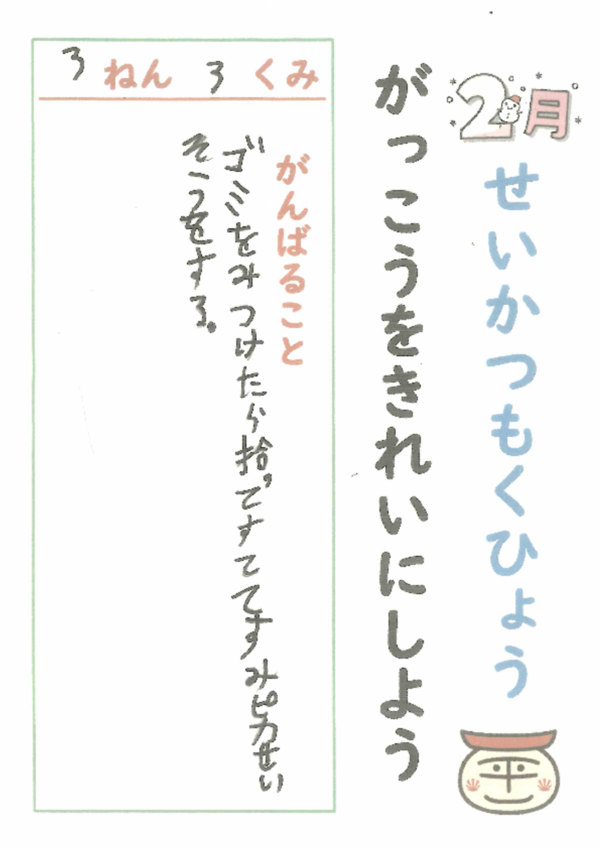 2月 せいかつもくひょう
がっこうをきれいにしよう
3 ねん 3 くみ
がんばること
ゴミをみつけたら拾ってすててすみピカせい
そうをする。